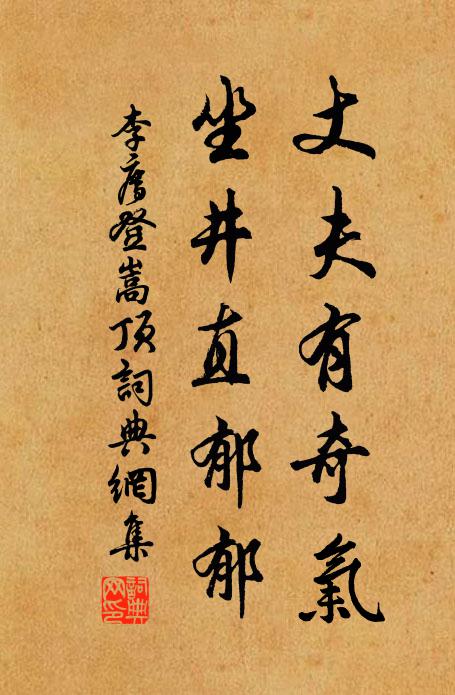 丈夫有奇氣
坐井直郁郁
李廌登嵩頂詞典網集
詞典网印